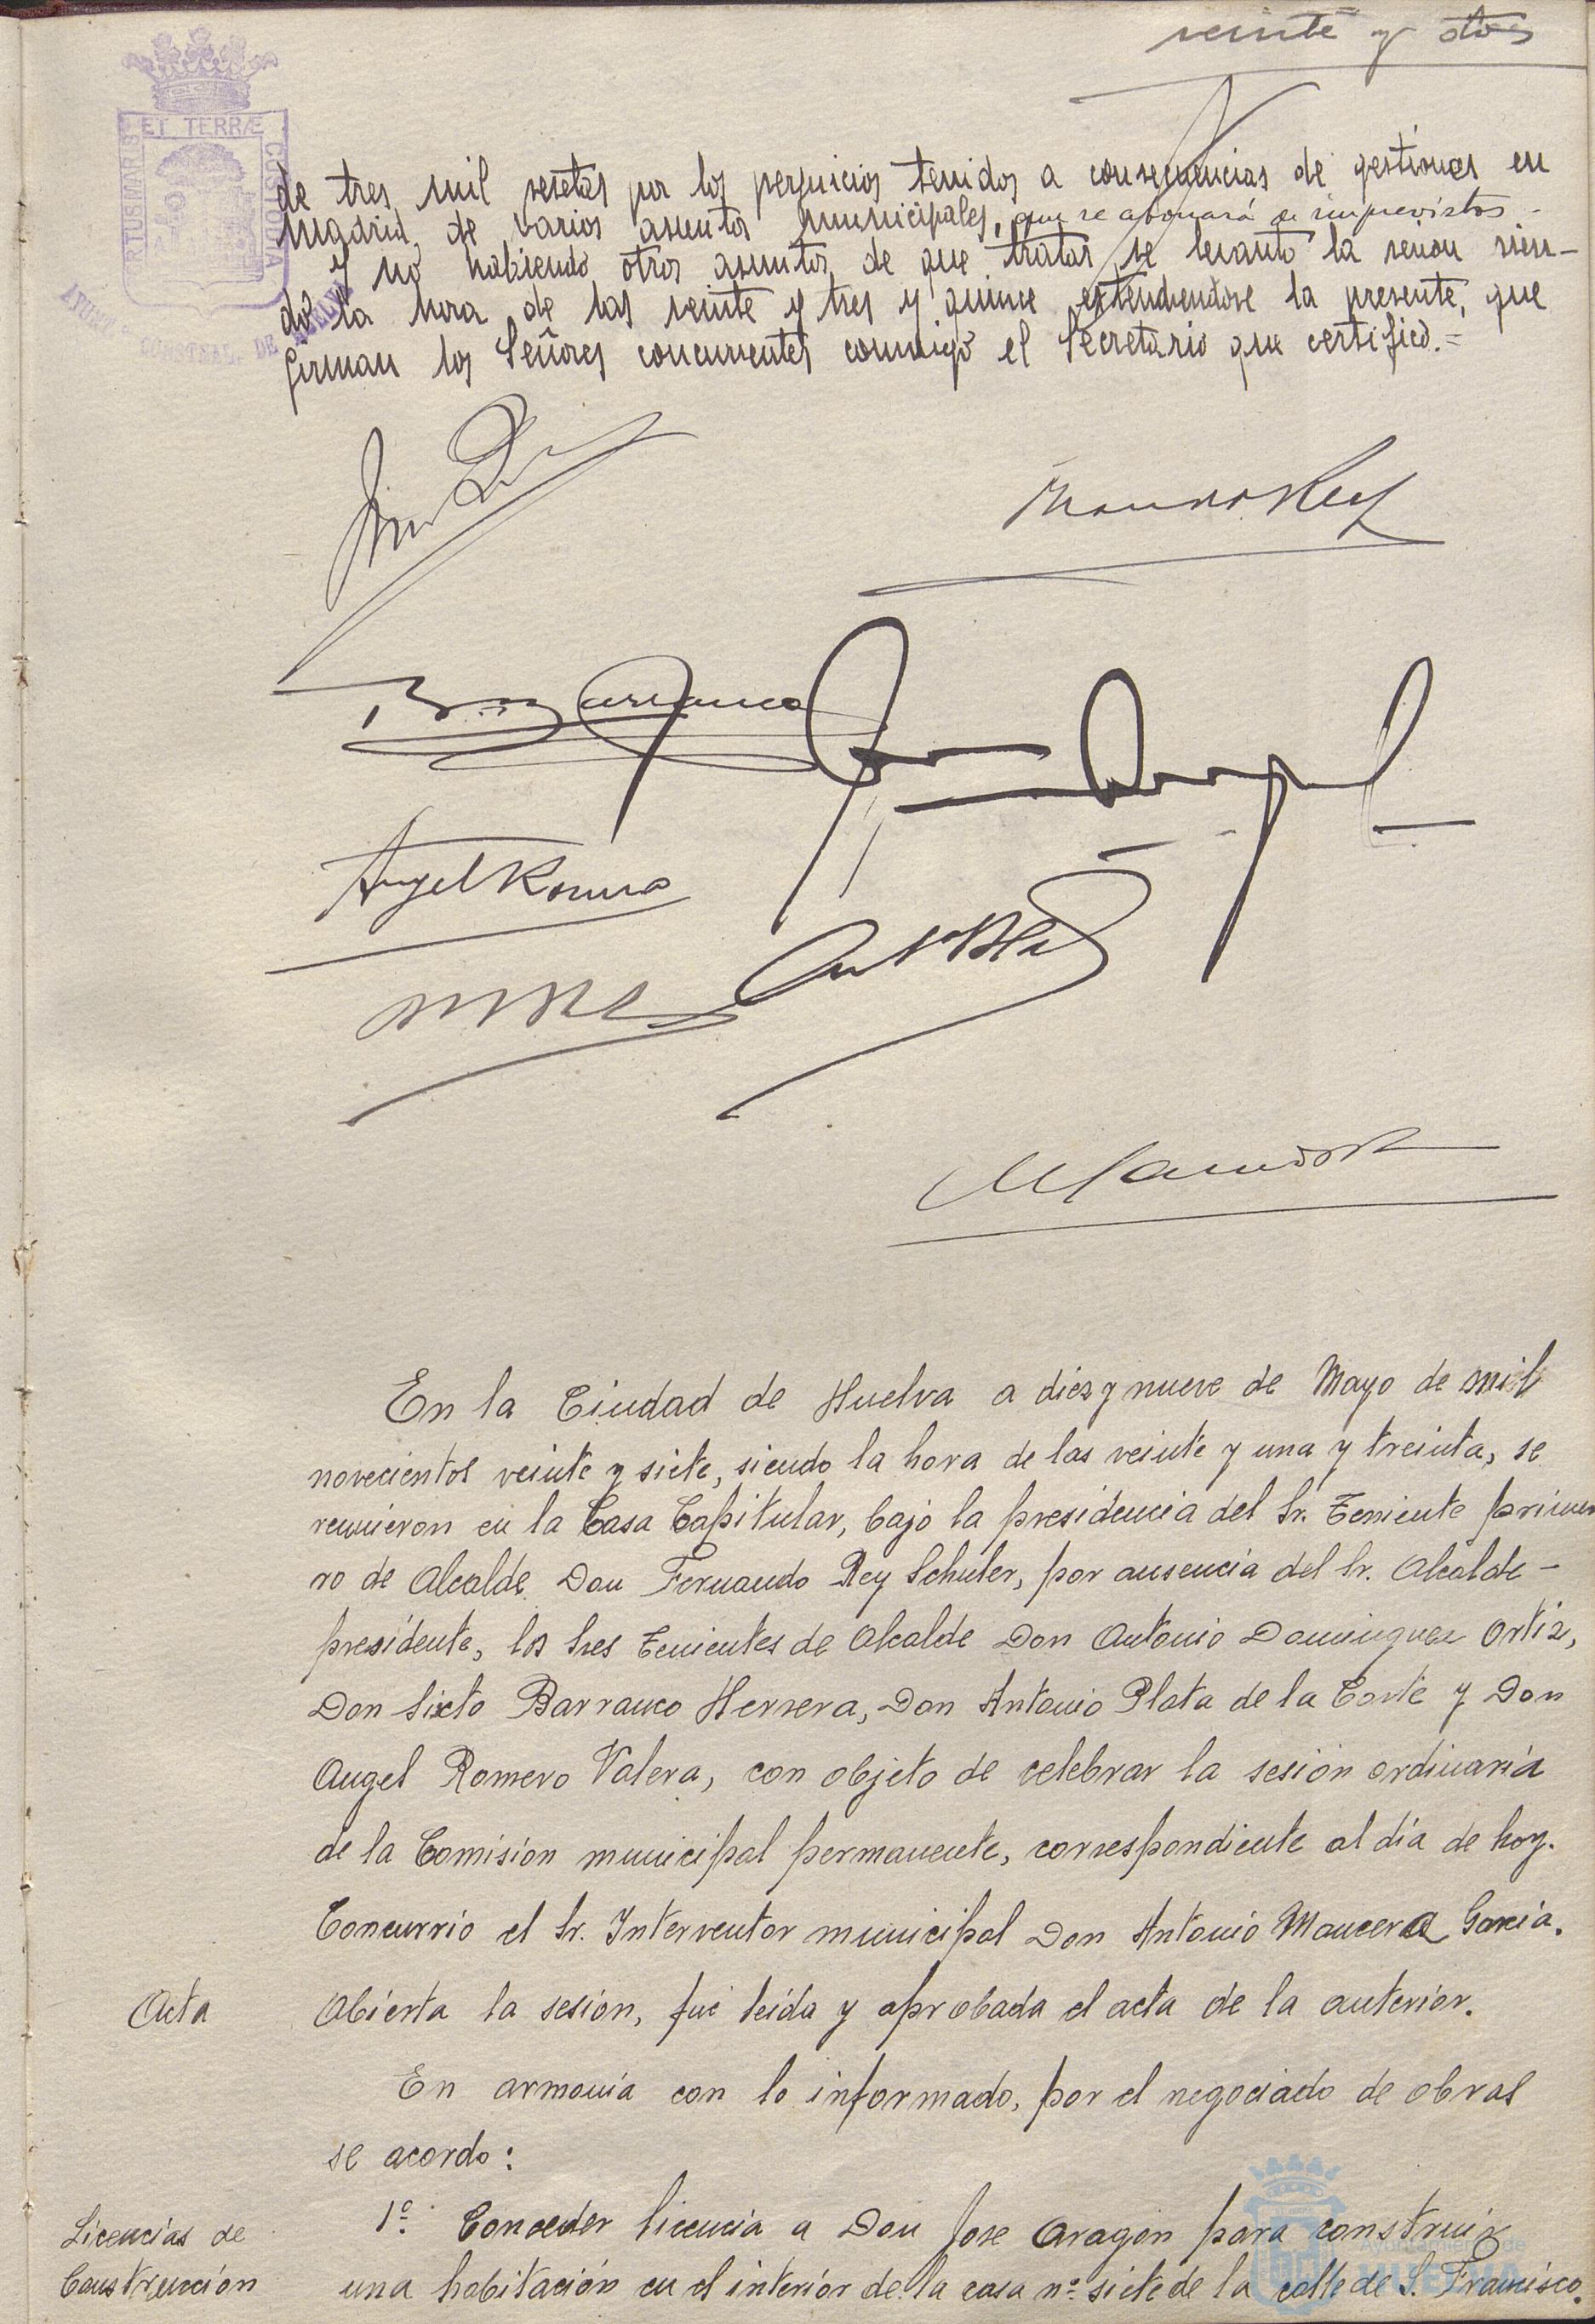 veinte y dos
ET TERRÆ
CUSTODIA
de tres mil pesetas por los perjuicios tenidos a consecuencias de gestiones en
Madrid, de varios asuntos municipales, que se abonará de imprevistos.-
Y no habiendo otros asuntos de que tratar se levantó la sesion sien-
do la hora de las veinte y tres y quince extendiendose la presente, que
firman los Señores concurrentes conmigo el Secretario que certifico.=
Angel Romero
En la Ciudad de Huelva a diez y nueve de Mayo de mil
novecientos veinte y siete, siendo la hora de las veinte y una y treinta, se
reunieron en la Casa Capitular, bajo la presidencia del Sr. Teniente prime
ro de Alcalde Don Fernando Rey Schuler, por ausencia del Sr. Alcalde-
presidente, los Sres Tenientes de Alcalde Don Antonio Dominguez Ortiz,
Don Sixto Barranco Herrera, Don Antonio Plata de la Corte y Don
Angel Romero Valera, con objeto de celebrar la sesión ordinaria
de la Comisión municipal permanente, correspondiente al día de hoy.
Concurrio el Sr. Interventor municipal Don Antonio Mancera Garcia.
Acta Abierta la sesión, fue leída y aprobada el acta de la anterior.
En armonía con lo informado, por el negociado de obras
se acordo:
Licencias de 1º. Conceder licencia a Don Jose Aragón para construir
Construcción una habitación en el interior de la casa nº siete de la calle de S. Francisco.
Ayuntamiento de
HUELVA